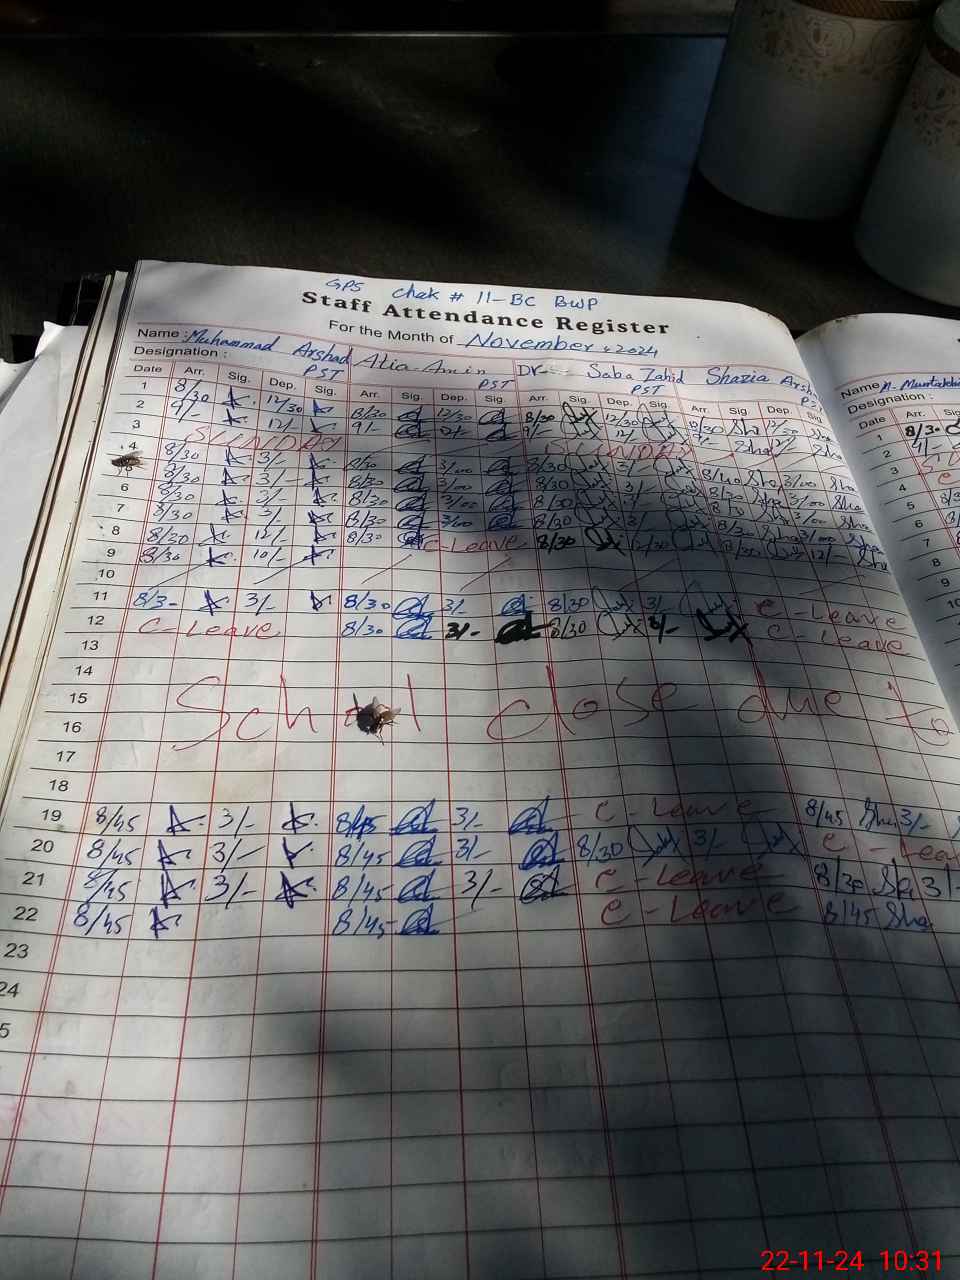 GPS Chak # 11-BC BWP
Staff Attendance Register
For the Month of November, 2024
Name : Muhammad Arshad Atia Amin Dr. Saba Zahid Shazia Arsh Name
Designation : PST PST PST PST Designation :
Date Arr. Sig. Dep. Sig. Arr. Sig. Dep. Sig. Arr. Sig. Dep. Sig. Arr. Sig. Dep. Sig. Date Arr.
1 8/30 12/30 8/30 12/30 8/30 12/30 8/30 Sha 12/30 Sha 1 8/30
2 9/- 12/- 9/- 9/- 12/- Sha 12/- Sha 2 9/-
3 SUNDAY SUNDAY 3
4 8/30 3/- 8/30 3/00 8/30 3/- 8/40 Sha 3/00 Sha 4
8/30 3/- 8/30 3/00 8/30 3/- 8/30 Sha 3/00 Sha 5
6 8/30 3/- 8/30 3/00 8/30 3/- 8/30 3/00 Sha 6
7 8/30 3/- 8/30 3/00 8/30 3/- 8/30 Sha 3/00 Sha 7
8 8/30 12/- 8/30 C-Leave 8/30 12/30 8/30 12/- Sha 8
9 8/30 10/- 9
10 10
11 8/3- 3/- 8/30 3/- 8/30 3/- C-Leave
12 C-Leave 8/30 3/- 8/30 3/- C-Leave
13
14
15 School close due to
16
17
18
19 8/45 3/- 8/45 3/- C-Leave 8/45 Sha 3/-
20 8/45 3/- 8/45 3/- 8/30 3/- C-Lea
21 8/45 3/- 8/45 3/- C-Leave 8/30 Sha 3/-
22 8/45 8/45 C-Leave 8/45 Sha
23
24
5
22-11-24 10:31